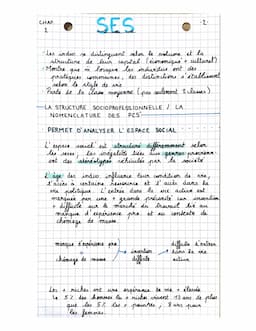 CHAP. 1
SES
- 2 -
- Les indiv se distinguent selon le volume et la
structure de leur capital (économique + culturel)
- Montre que si lorsque les individus ont des
pratiques communes, des distinctions s'établissent
selon le style de vie
- Parle de la classe moyenne (pas seulement 2 classes)
- LA STRUCTURE SOCIOPROFESSIONNELLE / LA
NOMENCLATURE DES PCS
PERMET D'ANALYSER L'ESPACE SOCIAL
L'espace social est structuré différemment selon
les sexes. Les inégalités liées aux genres proviennent
des stéréotypes véhiculés par la société
L'âge des indiv influence leur condition de vie,
l'accès à certaines ressources et l'accès dans la
vie politique. L'entrée dans la vie active est
marquée par une + grande précarité car insertion
+ difficile sur le marché du travail lié au
manque d'expérience pro et au contexte de
chômage de masse
manque d'expérience pro
chômage de masse
insertion
difficile
difficile d'entrer
dans la vie
active
Les + riches ont une espérance de vie + élevée
Les 5% des hommes les + riches vivent 13 ans de plus
que les 5% des + pauvres, 8 ans pour
les femmes.